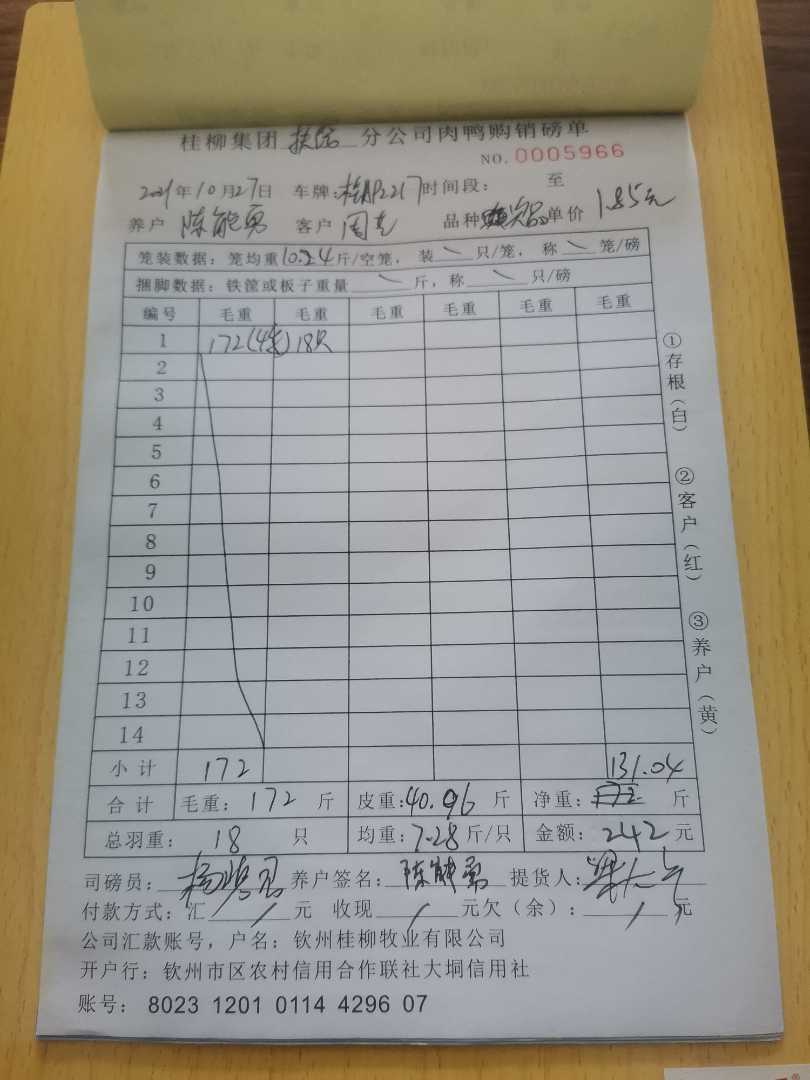 桂柳集团 分公司肉鸭购销磅单
NO.0005966
2021年10月27日 车牌:桂 2217 时间段: 至
养户 陈能勇 客户 周 品种 单价 1.85元
笼装数据: 笼均重10.24斤/空笼, 装\只/笼, 称\笼/磅
捆脚数据: 铁筐或板子重量\斤, 称\只/磅
编号 毛重 毛重 毛重 毛重 毛重 毛重
1 172(4笼) 18只
2
3
4
5
6
7
8
9
10
11
12
13
14
小计 172 131.04
合计 毛重: 172 斤 皮重:40.96 斤 净重: 172 斤
总羽重: 18 只 均重:7.28斤/只 金额: 242 元
司磅员: 杨 养户签名: 陈能勇 提货人:
付款方式: 汇 / 元 收现 / 元欠(余): / 元
公司汇款账号, 户名: 钦州桂柳牧业有限公司
开户行: 钦州市区农村信用合作联社大垌信用社
账号: 8023 1201 0114 4296 07
①存根(白)
②客户(红)
③养户(黄)